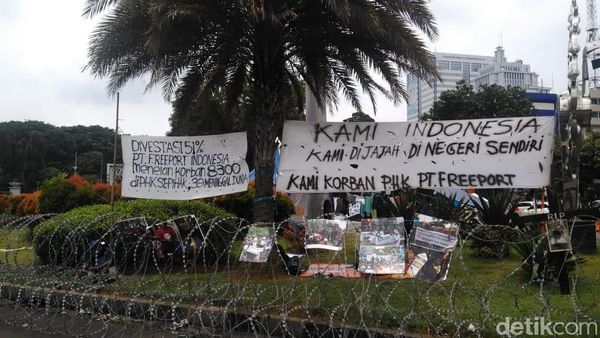 DIVESTASI 51%
PT. FREEPORT INDONESIA
menelan korban 8300
diPHK SEPIHAK, 30 MENINGGAL DUNIA
KAMI INDONESIA
KAMI DIJAJAH DI NEGERI SENDIRI
KAMI KORBAN PHK PT. FREEPORT
detikcom